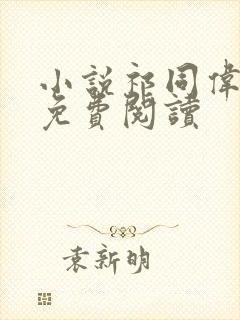 小說祁同偉
免費閱讀
袁新明